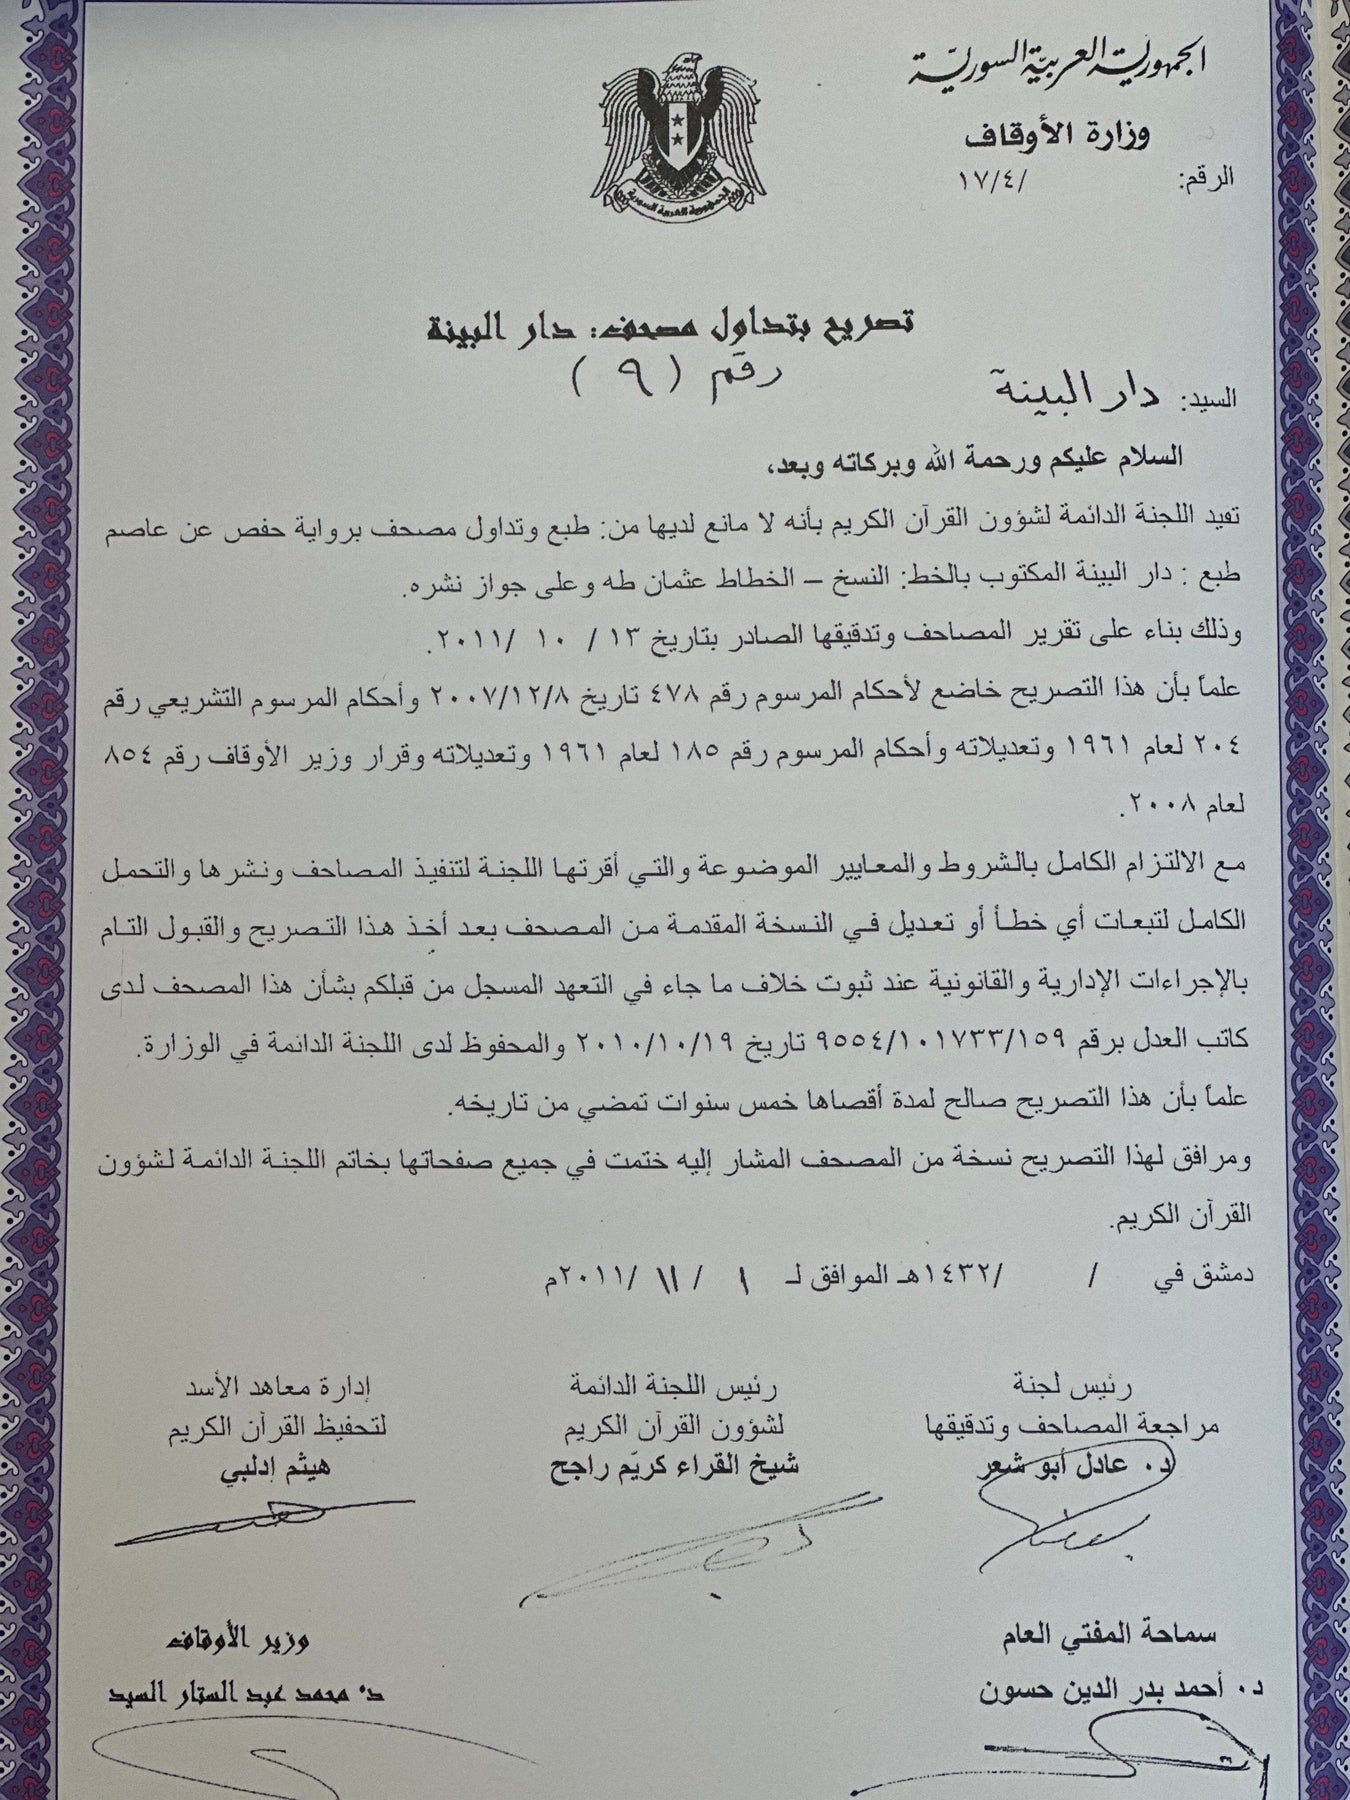 الجمهورية العربية السورية
وزارة الأوقاف
الرقم: /١٧/٤
الجمهورية العربية السورية
تصريح بتداول مصحف: دار البينة
رقم (٩)
السيد: دار البينة
السلام عليكم ورحمة الله وبركاته وبعد،
تفيد اللجنة الدائمة لشؤون القرآن الكريم بأنه لا مانع لديها من: طبع وتداول مصحف برواية حفص عن عاصم
طبع : دار البينة المكتوب بالخط: النسخ – الخطاط عثمان طه وعلى جواز نشره.
وذلك بناء على تقرير المصاحف وتدقيقها الصادر بتاريخ ١٣ / ١٠ /٢٠١١.
علماً بأن هذا التصريح خاضع لأحكام المرسوم رقم ٤٧٨ تاريخ ٢٠٠٧/١٢/٨ وأحكام المرسوم التشريعي رقم
٢٠٤ لعام ١٩٦١ وتعديلاته وأحكام المرسوم رقم ١٨٥ لعام ١٩٦١ وتعديلاته وقرار وزير الأوقاف رقم ٨٥٤
لعام ٢٠٠٨.
مع الالتزام الكامل بالشروط والمعايير الموضوعة والتي أقرتها اللجنة لتنفيذ المصاحف ونشرها والتحمل
الكامل لتبعات أي خطأ أو تعديل في النسخة المقدمة من المصحف بعد أخذ هذا التصريح والقبول التام
بالإجراءات الإدارية والقانونية عند ثبوت خلاف ما جاء في التعهد المسجل من قبلكم بشأن هذا المصحف لدى
كاتب العدل برقم ٩٥٥٤/١٠١٧٣٣/١٥٩ تاريخ ٢٠١٠/١٠/١٩ والمحفوظ لدى اللجنة الدائمة في الوزارة.
علماً بأن هذا التصريح صالح لمدة أقصاها خمس سنوات تمضي من تاريخه.
ومرافق لهذا التصريح نسخة من المصحف المشار إليه ختمت في جميع صفحاتها بخاتم اللجنة الدائمة لشؤون
القرآن الكريم.
دمشق في / /١٤٣٢هـ الموافق لـ ١ / ١١ /٢٠١١م
رئيس لجنة
مراجعة المصاحف وتدقيقها
د. عادل أبو شعر
رئيس اللجنة الدائمة
لشؤون القرآن الكريم
شيخ القراء كريّم راجح
إدارة معاهد الأسد
لتحفيظ القرآن الكريم
هيثم إدلبي
سماحة المفتي العام
د. أحمد بدر الدين حسون
وزير الأوقاف
د. محمد عبد الستار السيد